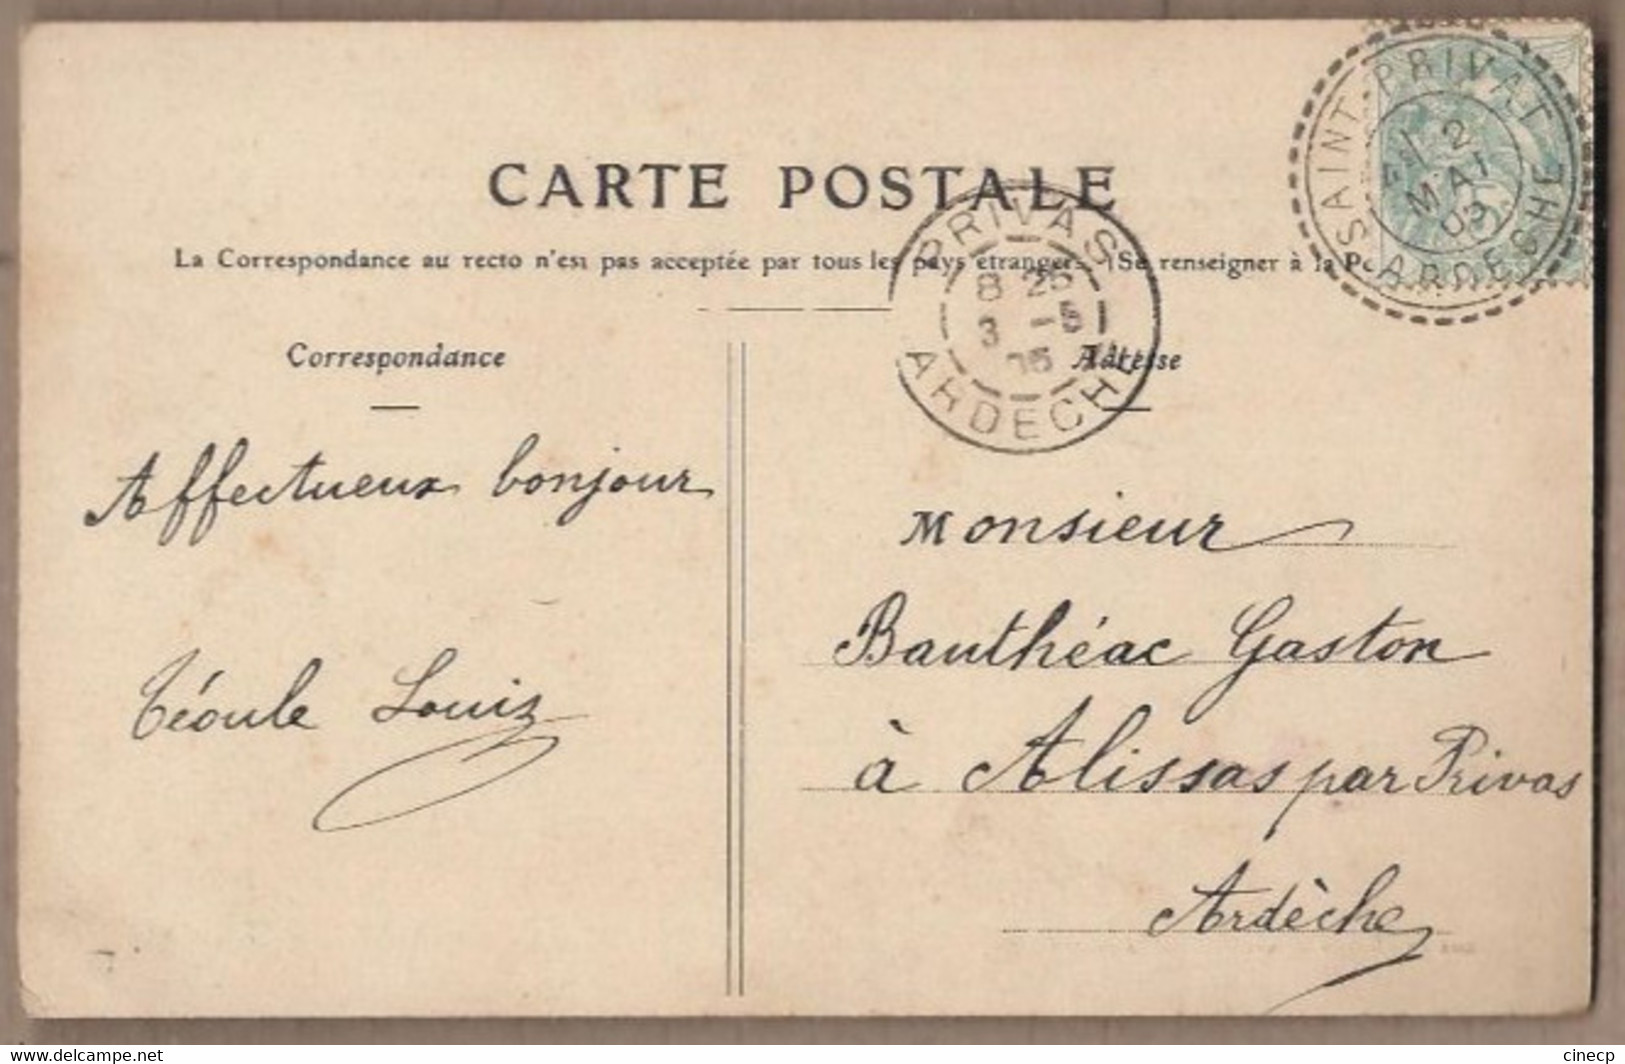 CARTE POSTALE
La Correspondance au recto n'est pas acceptée par tous les pays étrangers (Se renseigner à la
Correspondance
Adresse
SAINT-PRIVAT
2
MAI
ARDECHE
PRIVAS
8 25
3 -5
ARDECHE
Affectueux bonjour
Téoule Louis
Monsieur
Bauthéac Gaston
à Alissas par Privas
Ardèche
www.delcampe.net
cinecp